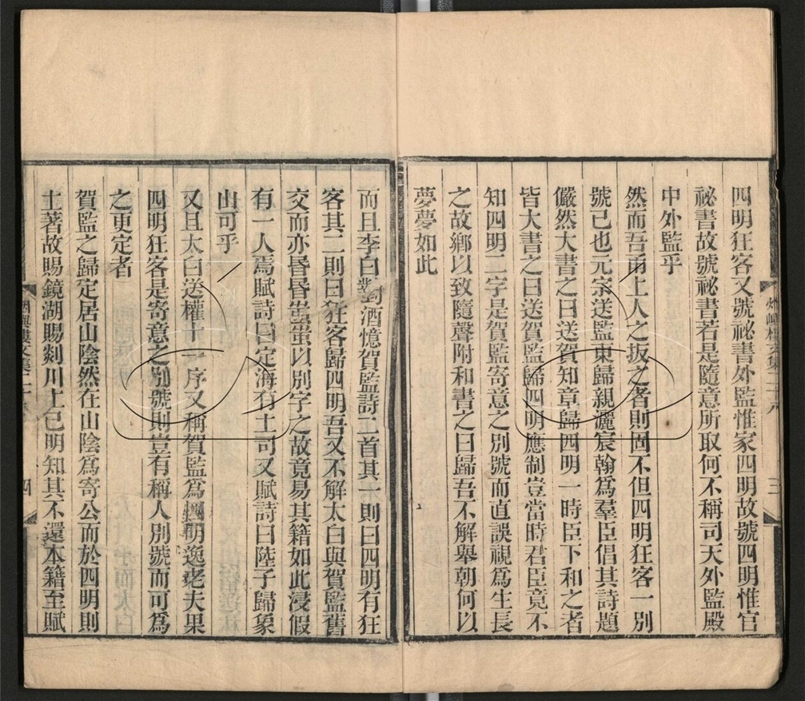 四明狂客又號祕書外監惟家四明故號四明惟官
祕書故號祕書若是隨意所取何不稱司天外監殿
中外監乎
然而吾甬上人之扳之者則固不但四明狂客一別
號已也元宗送監東歸親灑宸翰為羣臣倡其詩題
儼然大書之曰送賀知章歸四明一時臣下和之者
皆大書之曰送賀監歸四明應制豈當時君臣竟不
知四明二字是賀監寄意之別號而直誤視為生長
之故鄉以致隨聲附和書之曰歸吾不解舉朝何以
夢夢如此
而且李白對酒憶賀監詩二首其一則曰四明有狂
客其二則曰狂客歸四明吾又不解太白與賀監舊
交而亦昬昬蚩蚩以別字之故竟易其籍如此浸假
有一人焉賦詩曰定海有土司又賦詩曰陸子歸象
山可乎
又且太白送權十一序又稱賀監為四明逸老夫果
四明狂客是寄意之別號則豈有稱人別號而可為
之更定者
賀監之歸定居山陰然在山陰為寄公而於四明則
土著故賜鏡湖賜剡川上已明知其不還本籍至賦
三
四